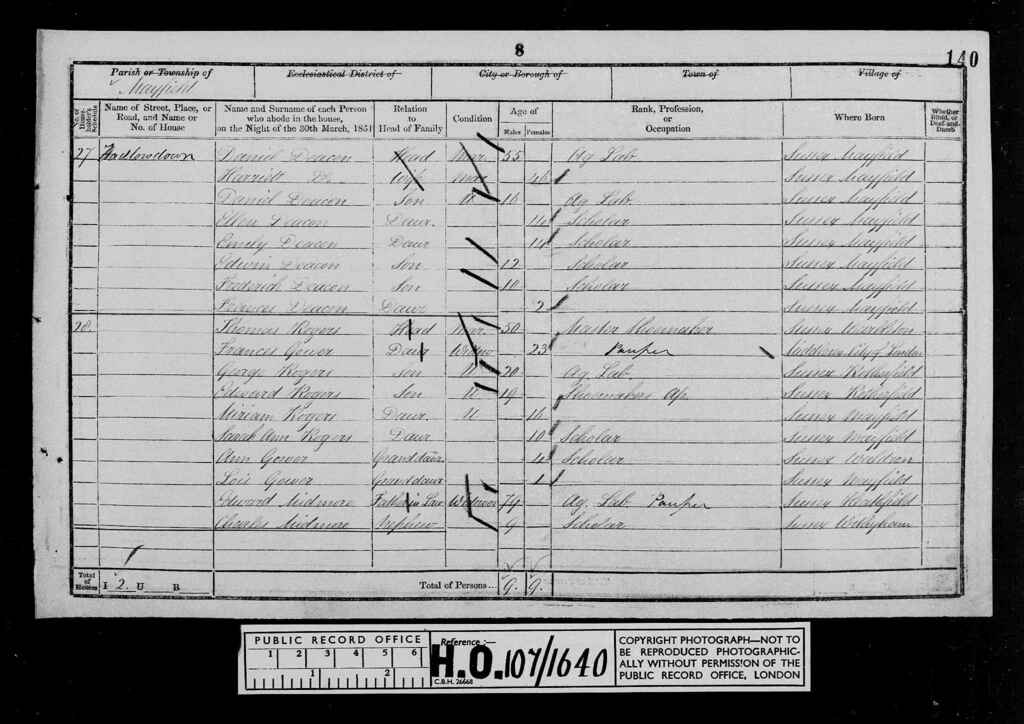 8
140
Parish or Township of
Ecclesiastical District of
City or Borough of
Town of
Village of
Mayfield
No. of House-holder's Schedule
Name of Street, Place, or Road, and Name or No. of House
Name and Surname of each Person who abode in the house, on the Night of the 30th March, 1851
Relation to Head of Family
Condition
Age of
Males
Females
Rank, Profession, or Occupation
Where Born
Whether Blind, or Deaf-and-Dumb
27 Hadlowdown Daniel Deacon Head Mar. 55 Ag Lab. Sussex Mayfield
Harriett Do Wife Mar 46 Sussex Mayfield
Daniel Deacon Son U 16 Ag Lab. Sussex Mayfield
Ellen Deacon Daur. 14 Scholar Sussex Mayfield
Emily Deacon Daur 14 Scholar Sussex Mayfield
Edwin Deacon Son 12 Scholar Sussex Mayfield
Frederick Deacon Son 10 Scholar Sussex Mayfield
Frances Deacon Daur 2 Sussex Mayfield
28 Thomas Rogers Head Mar. 50 Master Shoemaker Sussex
Frances Gower Daur Widow 23 Pauper Middlesex City of London
George Rogers Son U 20 Ag Lab. Sussex Rotherfield
Edward Rogers Son U 19 Shoemakers Ap. Sussex Rotherfield
Miriam Rogers Daur. U 16 Sussex Mayfield
Sarah Ann Rogers Daur 10 Scholar Sussex Mayfield
Ann Gower Granddaur. 4 Scholar Sussex Waldron
Lois Gower Granddaur 1 Sussex Mayfield
Edward Midmore Father in Law Widower 79 Ag. Lab. Pauper Sussex
Charles Midmore Nephew 9 Scholar Sussex Withyham
Total of Houses
I 2. U B
Total of Persons
9. 9.
PUBLIC RECORD OFFICE
1 2 3 4 5 6
1 2
Reference :—
H.O. 107/1640
C.B.H. 26668
COPYRIGHT PHOTOGRAPH—NOT TO
BE REPRODUCED PHOTOGRAPHIC-
ALLY WITHOUT PERMISSION OF THE
PUBLIC RECORD OFFICE, LONDON